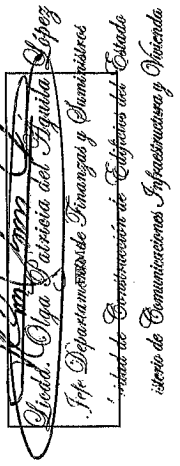 Licda. Olga Patricia del Aguila López
Jefe Departamento de Finanzas y Suministros
Unidad de Construcción de Edificios del Estado
isterio de Comunicaciones Infraestructura y Vivienda